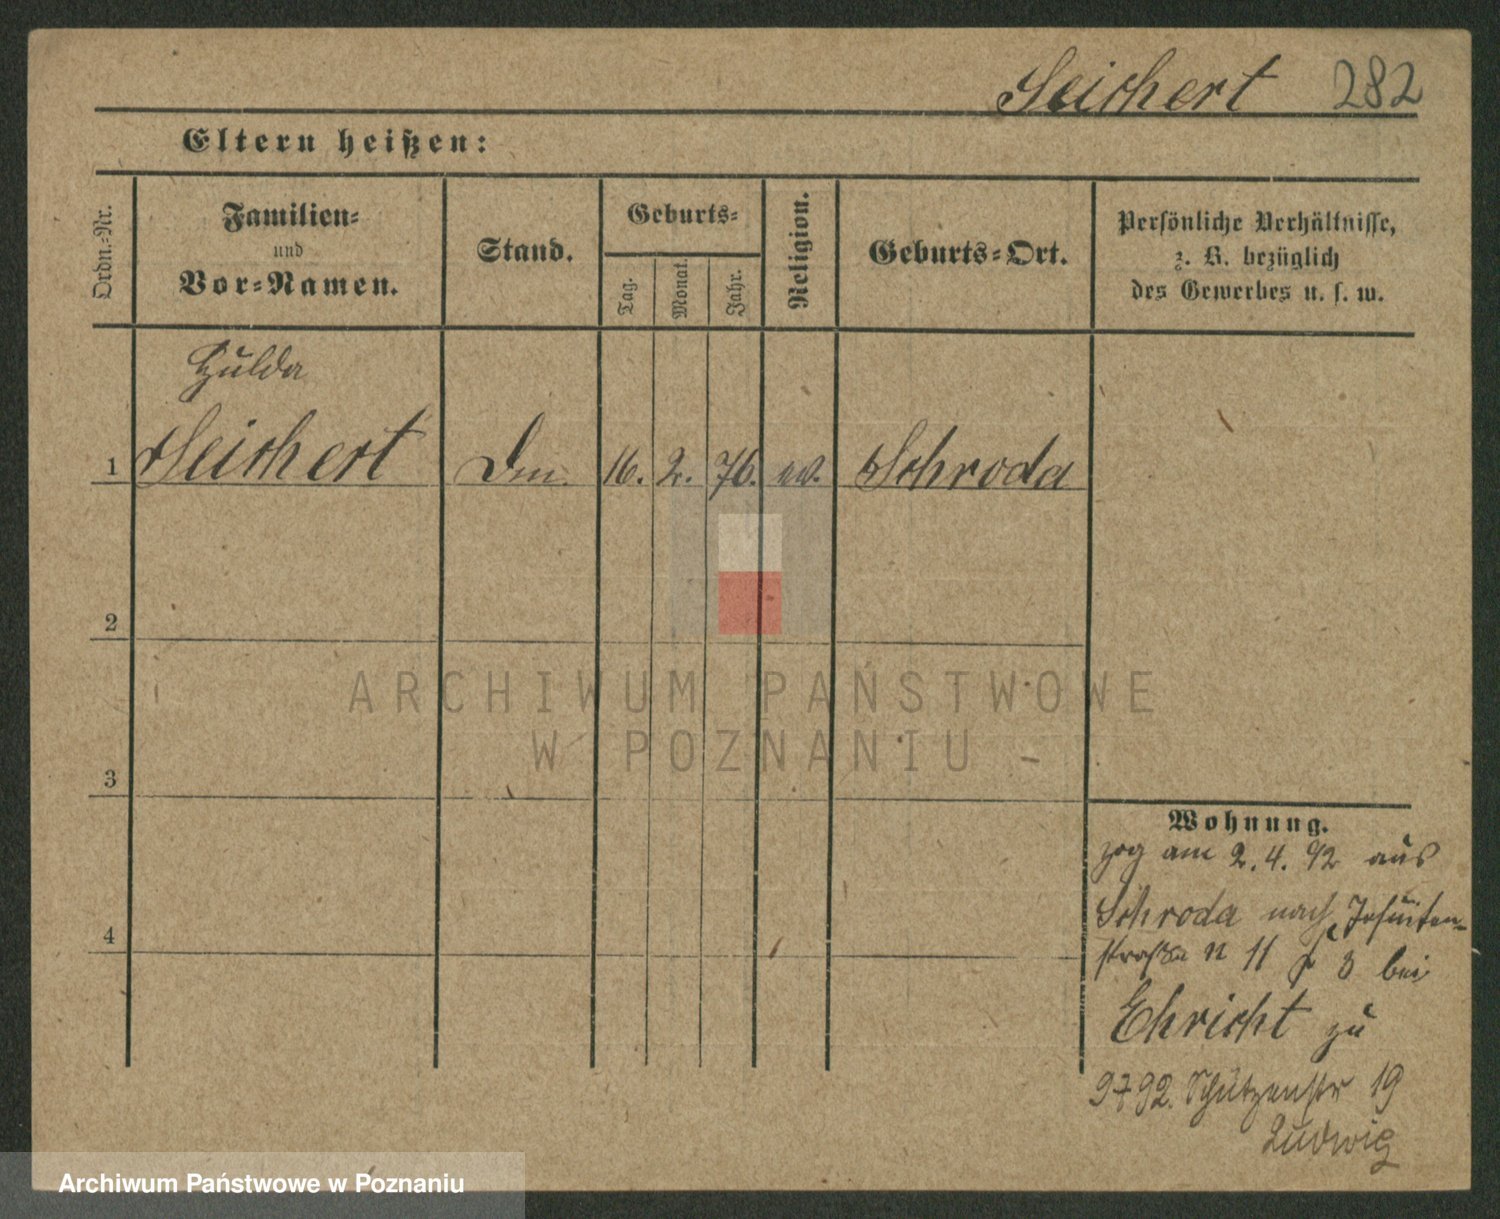 Seichert 282
Eltern heißen:
Ordn.-Nr.
Familien-
und
Vor-Namen.
Stand.
Geburts-
Tag.
Monat.
Jahr.
Religion.
Geburts-Ort.
Persönliche Verhältnisse,
z. B. bezüglich
des Gewerbes u. s. w.
Hulda
1 Seichert 16. 2. 76. ev. Schroda
2
3
4
Wohnung.
zog am 2. 4. 92 aus
Schroda nach Jesuiten-
straße N 11 3 bei
Ehricht zu
9792. Schützenstr 19
Ludwig
ARCHIWUM PAŃSTWOWE
W POZNANIU
Archiwum Państwowe w Poznaniu